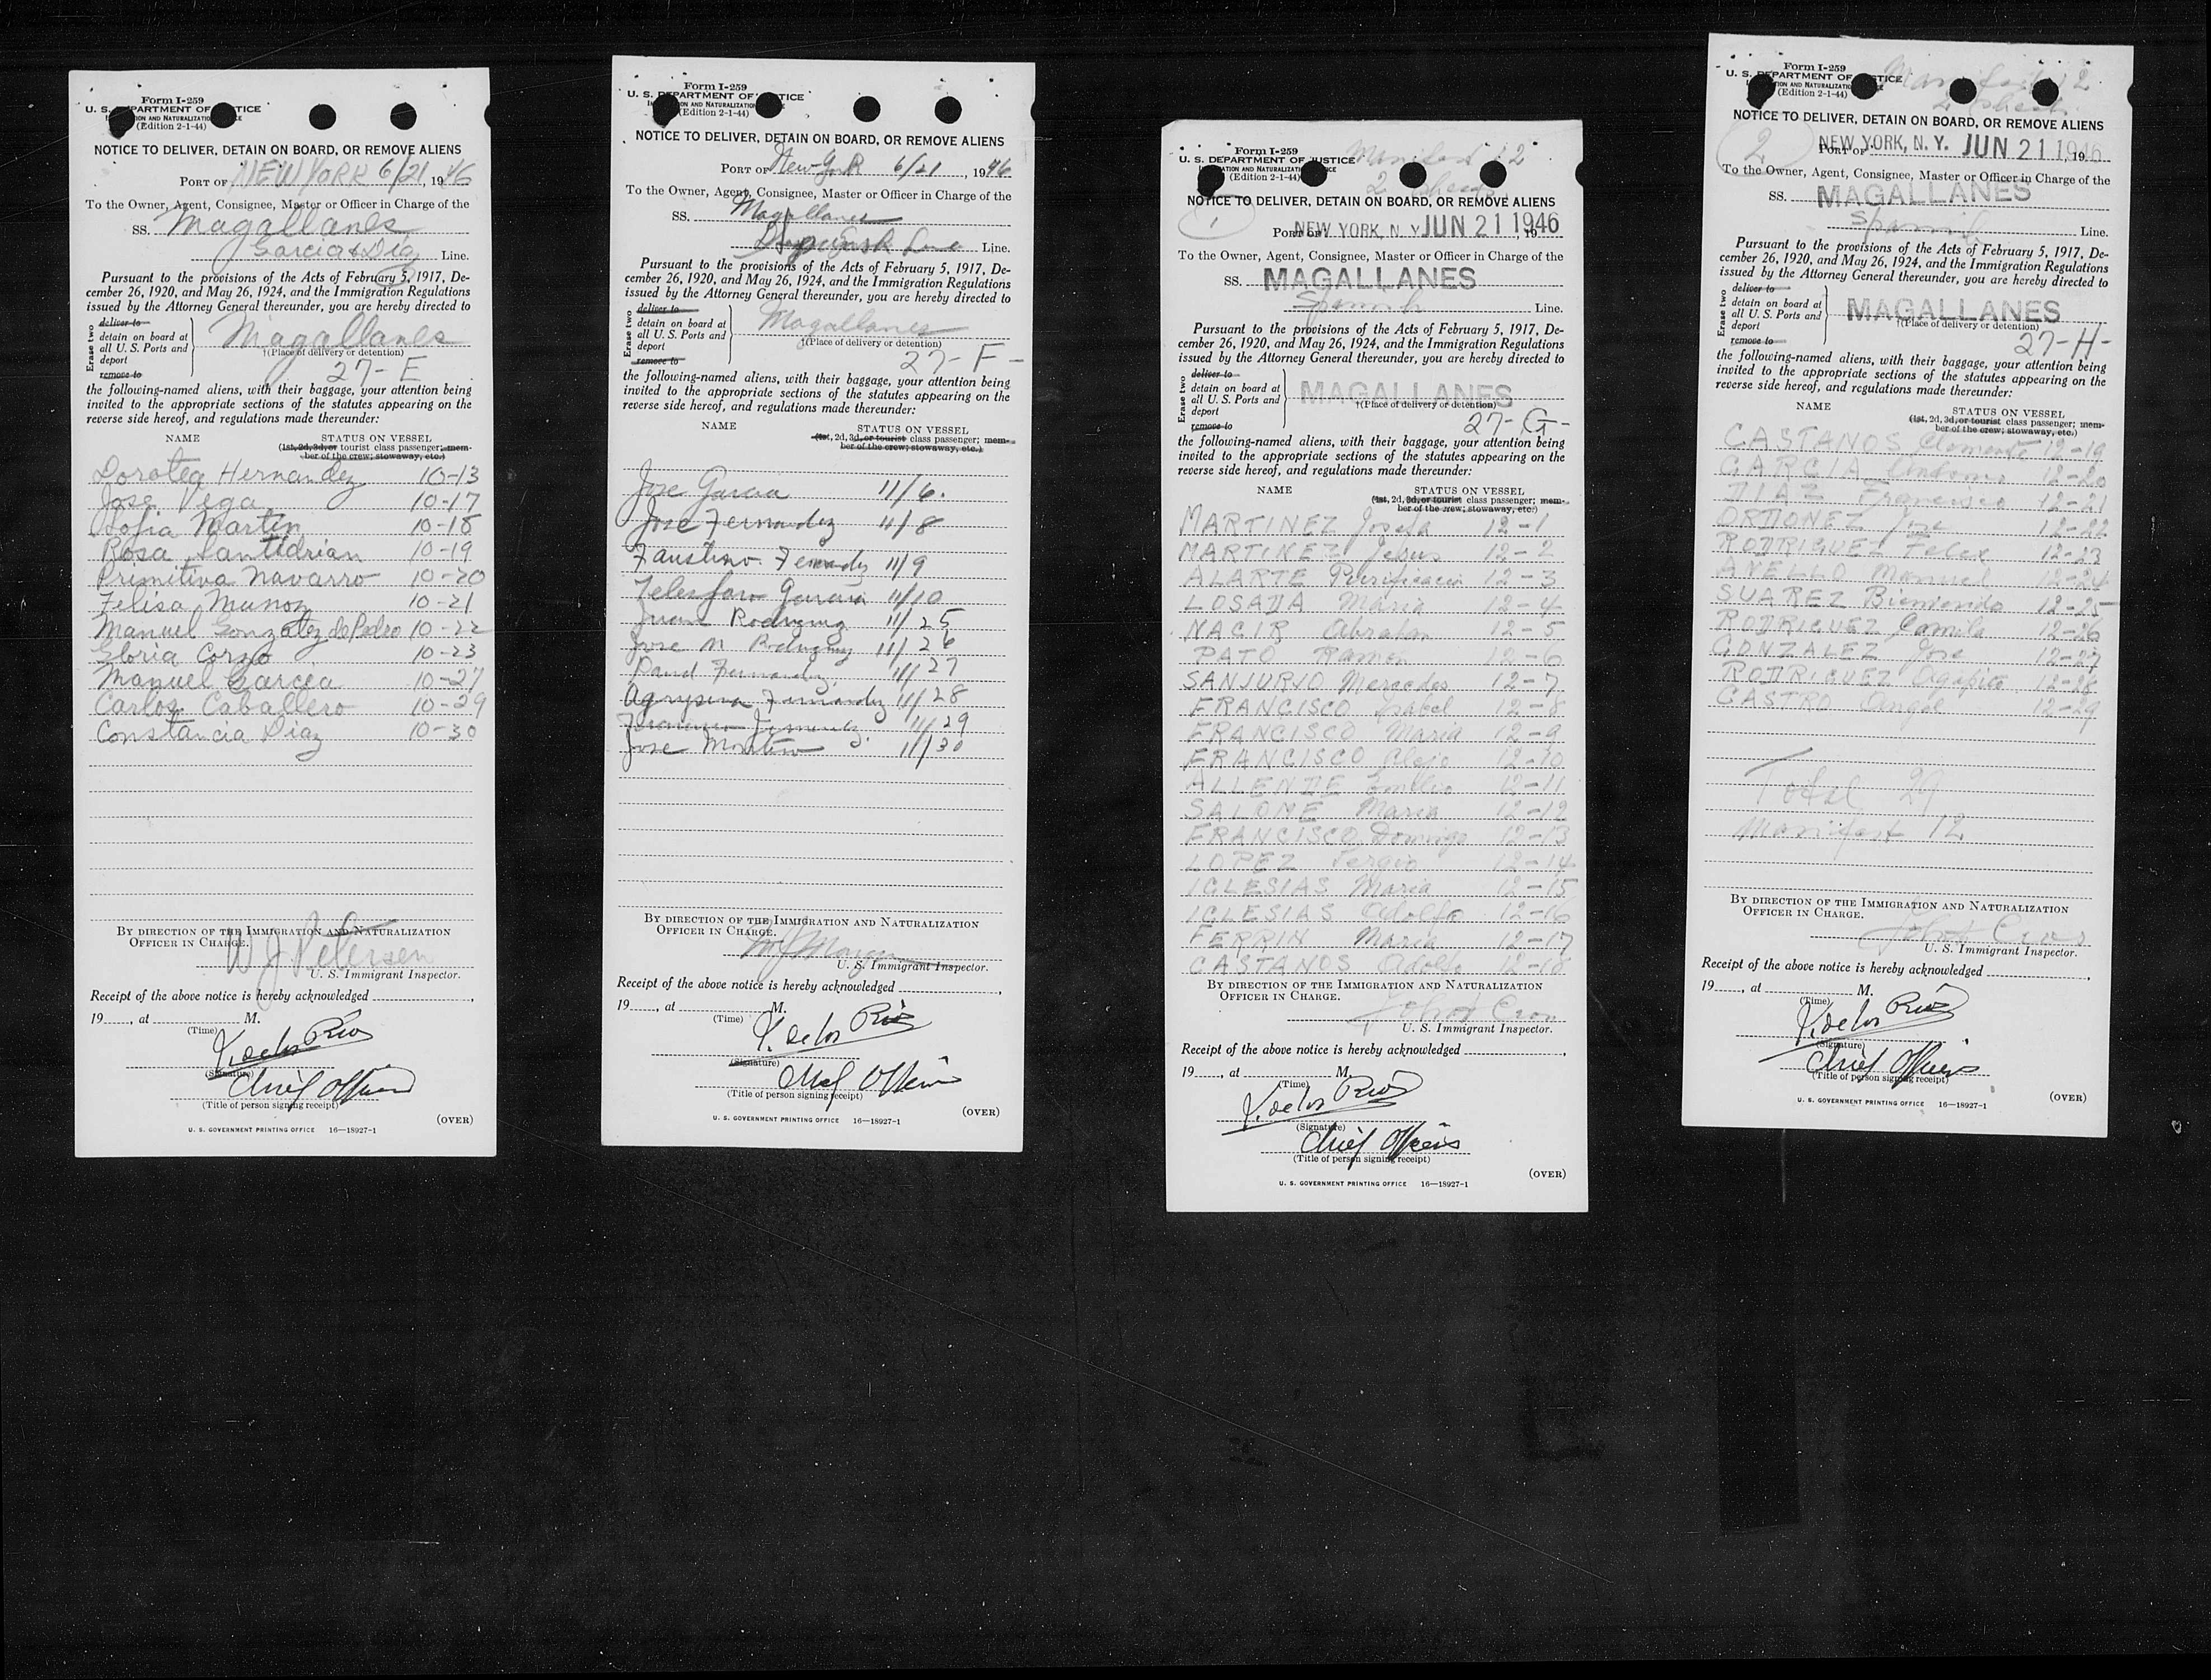 Form I-259
U. S. DEPARTMENT OF JUSTICE
(Edition 2-1-44)
NOTICE TO DELIVER, DETAIN ON BOARD, OR REMOVE ALIENS
PORT OF NEW YORK 6/21, 1946
To the Owner, Agent, Consignee, Master or Officer in Charge of the
SS. Magallanes
Garcia & Dia Line.
Pursuant to the provisions of the Acts of February 5, 1917, De-
cember 26, 1920, and May 26, 1924, and the Immigration Regulations
issued by the Attorney General thereunder, you are hereby directed to
Erase two
deliver to
detain on board at
all U. S. Ports and
deport
remove to
Magallanes
†(Place of delivery or detention)
27-E
the following-named aliens, with their baggage, your attention being
invited to the appropriate sections of the statutes appearing on the
reverse side hereof, and regulations made thereunder:
NAME STATUS ON VESSEL
(1st, 2d, 3d, or tourist class passenger; mem-
ber of the crew; stowaway, etc.)
Dorotea Hernandez 10-13
Jose Vega 10-17
Sofia Martin 10-18
Rosa Santidrian 10-19
Primitiva Navarro 10-20
Felisa Munoz 10-21
Manuel Gonzalez de Pedro 10-22
Gloria Corzo 10-23
Manuel Garcea 10-27
Carlos Caballero 10-29
Constancia Diaz 10-30
BY DIRECTION OF THE IMMIGRATION AND NATURALIZATION
OFFICER IN CHARGE.
W J Petersen
U. S. Immigrant Inspector.
Receipt of the above notice is hereby acknowledged
19, at M.
(Time)
Y. de los Rios
(Signature)
Chief Officer
(Title of person signing receipt)
(OVER)
U. S. GOVERNMENT PRINTING OFFICE 16—18927-1
Form I-259
U. S. DEPARTMENT OF JUSTICE
ION AND NATURALIZATION
(Edition 2-1-44)
NOTICE TO DELIVER, DETAIN ON BOARD, OR REMOVE ALIENS
PORT OF New York 6/21, 1946
To the Owner, Agent, Consignee, Master or Officer in Charge of the
SS. Magallanes
Line.
Pursuant to the provisions of the Acts of February 5, 1917, De-
cember 26, 1920, and May 26, 1924, and the Immigration Regulations
issued by the Attorney General thereunder, you are hereby directed to
Erase two
deliver to
detain on board at
all U. S. Ports and
deport
remove to
Magallanes
†(Place of delivery or detention)
27-F-
the following-named aliens, with their baggage, your attention being
invited to the appropriate sections of the statutes appearing on the
reverse side hereof, and regulations made thereunder:
NAME STATUS ON VESSEL
(1st, 2d, 3d, or tourist class passenger; mem-
ber of the crew; stowaway, etc.)
Jose Garcia 11/6.
Jose Fernandez 11/8
Faustino Fernandez 11/9
Telesforo Garcia 11/10
Juan Rodriguez 11/25
Jose M Rodriguez 11/26
David Fernandez 11/27
Agripina Fernandez 11/28
11/29
Jose 11/30
BY DIRECTION OF THE IMMIGRATION AND NATURALIZATION
OFFICER IN CHARGE.
U. S. Immigrant Inspector.
Receipt of the above notice is hereby acknowledged
19, at M.
(Time)
Y. de los Rios
(Signature)
Chief Officer
(Title of person signing receipt)
(OVER)
U. S. GOVERNMENT PRINTING OFFICE 16—18927-1
Form I-259
U. S. DEPARTMENT OF JUSTICE
(Edition 2-1-44)
Manifest 12
2 sheets
1
NOTICE TO DELIVER, DETAIN ON BOARD, OR REMOVE ALIENS
PORT OF NEW YORK, N. Y. JUN 21 1946
To the Owner, Agent, Consignee, Master or Officer in Charge of the
SS. MAGALLANES
Spanish Line.
Pursuant to the provisions of the Acts of February 5, 1917, De-
cember 26, 1920, and May 26, 1924, and the Immigration Regulations
issued by the Attorney General thereunder, you are hereby directed to
Erase two
deliver to
detain on board at
all U. S. Ports and
deport
remove to
MAGALLANES
†(Place of delivery or detention)
27-G-
the following-named aliens, with their baggage, your attention being
invited to the appropriate sections of the statutes appearing on the
reverse side hereof, and regulations made thereunder:
NAME STATUS ON VESSEL
(1st, 2d, 3d, or tourist class passenger; mem-
ber of the crew; stowaway, etc.)
MARTINEZ Josefa 12-1
MARTINEZ Jesus 12-2
ALARTE Purificacion 12-3
LOSADA Maria 12-4
NACIR Abraham 12-5
PATO Ramon 12-6
SANJURJO Mercedes 12-7
FRANCISCO Isabel 12-8
FRANCISCO Maria 12-9
FRANCISCO Clejo 12-10
ALLENDE Emilio 12-11
SALOME Maria 12-12
FRANCISCO Domingo 12-13
LOPEZ Sergio 12-14
IGLESIAS Maria 12-15
IGLESIAS Adolfo 12-16
FERRIN Maria 12-17
CASTANOS Adolfo 12-18
BY DIRECTION OF THE IMMIGRATION AND NATURALIZATION
OFFICER IN CHARGE.
U. S. Immigrant Inspector.
Receipt of the above notice is hereby acknowledged
19, at M.
(Time)
Y. de los Rios
(Signature)
Chief Officer
(Title of person signing receipt)
(OVER)
U. S. GOVERNMENT PRINTING OFFICE 16—18927-1
Form I-259
U. S. DEPARTMENT OF JUSTICE
(Edition 2-1-44)
Manifest 12
2 sheets
2
NOTICE TO DELIVER, DETAIN ON BOARD, OR REMOVE ALIENS
PORT OF NEW YORK, N. Y. JUN 21 1946
To the Owner, Agent, Consignee, Master or Officer in Charge of the
SS. MAGALLANES
Spanish Line.
Pursuant to the provisions of the Acts of February 5, 1917, De-
cember 26, 1920, and May 26, 1924, and the Immigration Regulations
issued by the Attorney General thereunder, you are hereby directed to
Erase two
deliver to
detain on board at
all U. S. Ports and
deport
remove to
MAGALLANES
†(Place of delivery or detention)
27-H-
the following-named aliens, with their baggage, your attention being
invited to the appropriate sections of the statutes appearing on the
reverse side hereof, and regulations made thereunder:
NAME STATUS ON VESSEL
(1st, 2d, 3d, or tourist class passenger; mem-
ber of the crew; stowaway, etc.)
CASTANOS Clemente 12-19
GARCIA Antonio 12-20
DIAZ Francisco 12-21
ORDONEZ Jose 12-22
RODRIGUEZ Felix 12-23
ANELLO Manuel 12-24
SUAREZ Bienvenido 12-25
RODRIGUEZ Camilo 12-26
GONZALEZ Jose 12-27
RODRIGUEZ Agapito 12-28
CASTRO Angel 12-29
Total 29
Manifest 12
BY DIRECTION OF THE IMMIGRATION AND NATURALIZATION
OFFICER IN CHARGE.
U. S. Immigrant Inspector.
Receipt of the above notice is hereby acknowledged
19, at M.
(Time)
Y. de los Rios
(Signature)
Chief Officer
(Title of person signing receipt)
(OVER)
U. S. GOVERNMENT PRINTING OFFICE 16—18927-1